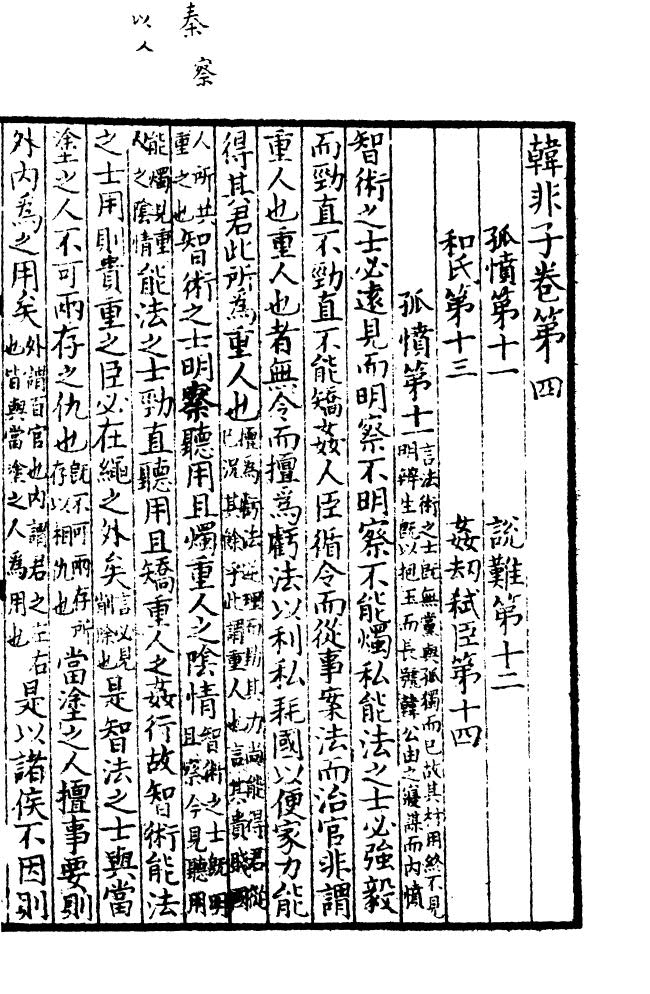 秦察
以人
韓非子卷第四
孤憤第十一 說難第十二
和氏第十三 姦刼弒臣第十四
孤憤第十一 言法術之士既無黨與孤獨而已故其材用終不見
明辨生既以抱玉而長號韓公由之寢謀而内憤
智術之士必遠見而明察不明察不能燭私能法之士必強毅
而勁直不勁直不能矯姦人臣循令而從事案法而治官非謂
重人也重人也者無令而擅為虧法以利私耗國以便家力能
得其君此所為重人也 擅為虧法逆理而動其力尚能得君從
已況其餘乎此謂重人也言其貴賤國
人所共
重之也 智術之士明察聽用且燭重人之陰情 智術之士既明
且察今見聽用
能燭見重
人之陰情 能法之士勁直聽用且矯重人之姦行故智術能法
之士用則貴重之臣必在繩之外矣 言必見
削除也 是智法之士與當
塗之人不可兩存之仇也 既不可兩存所
存以相仇也 當塗之人擅事要則
外内為之用矣 外謂百官也内謂君之左右
也皆與當塗之人為用也 是以諸侯不因則